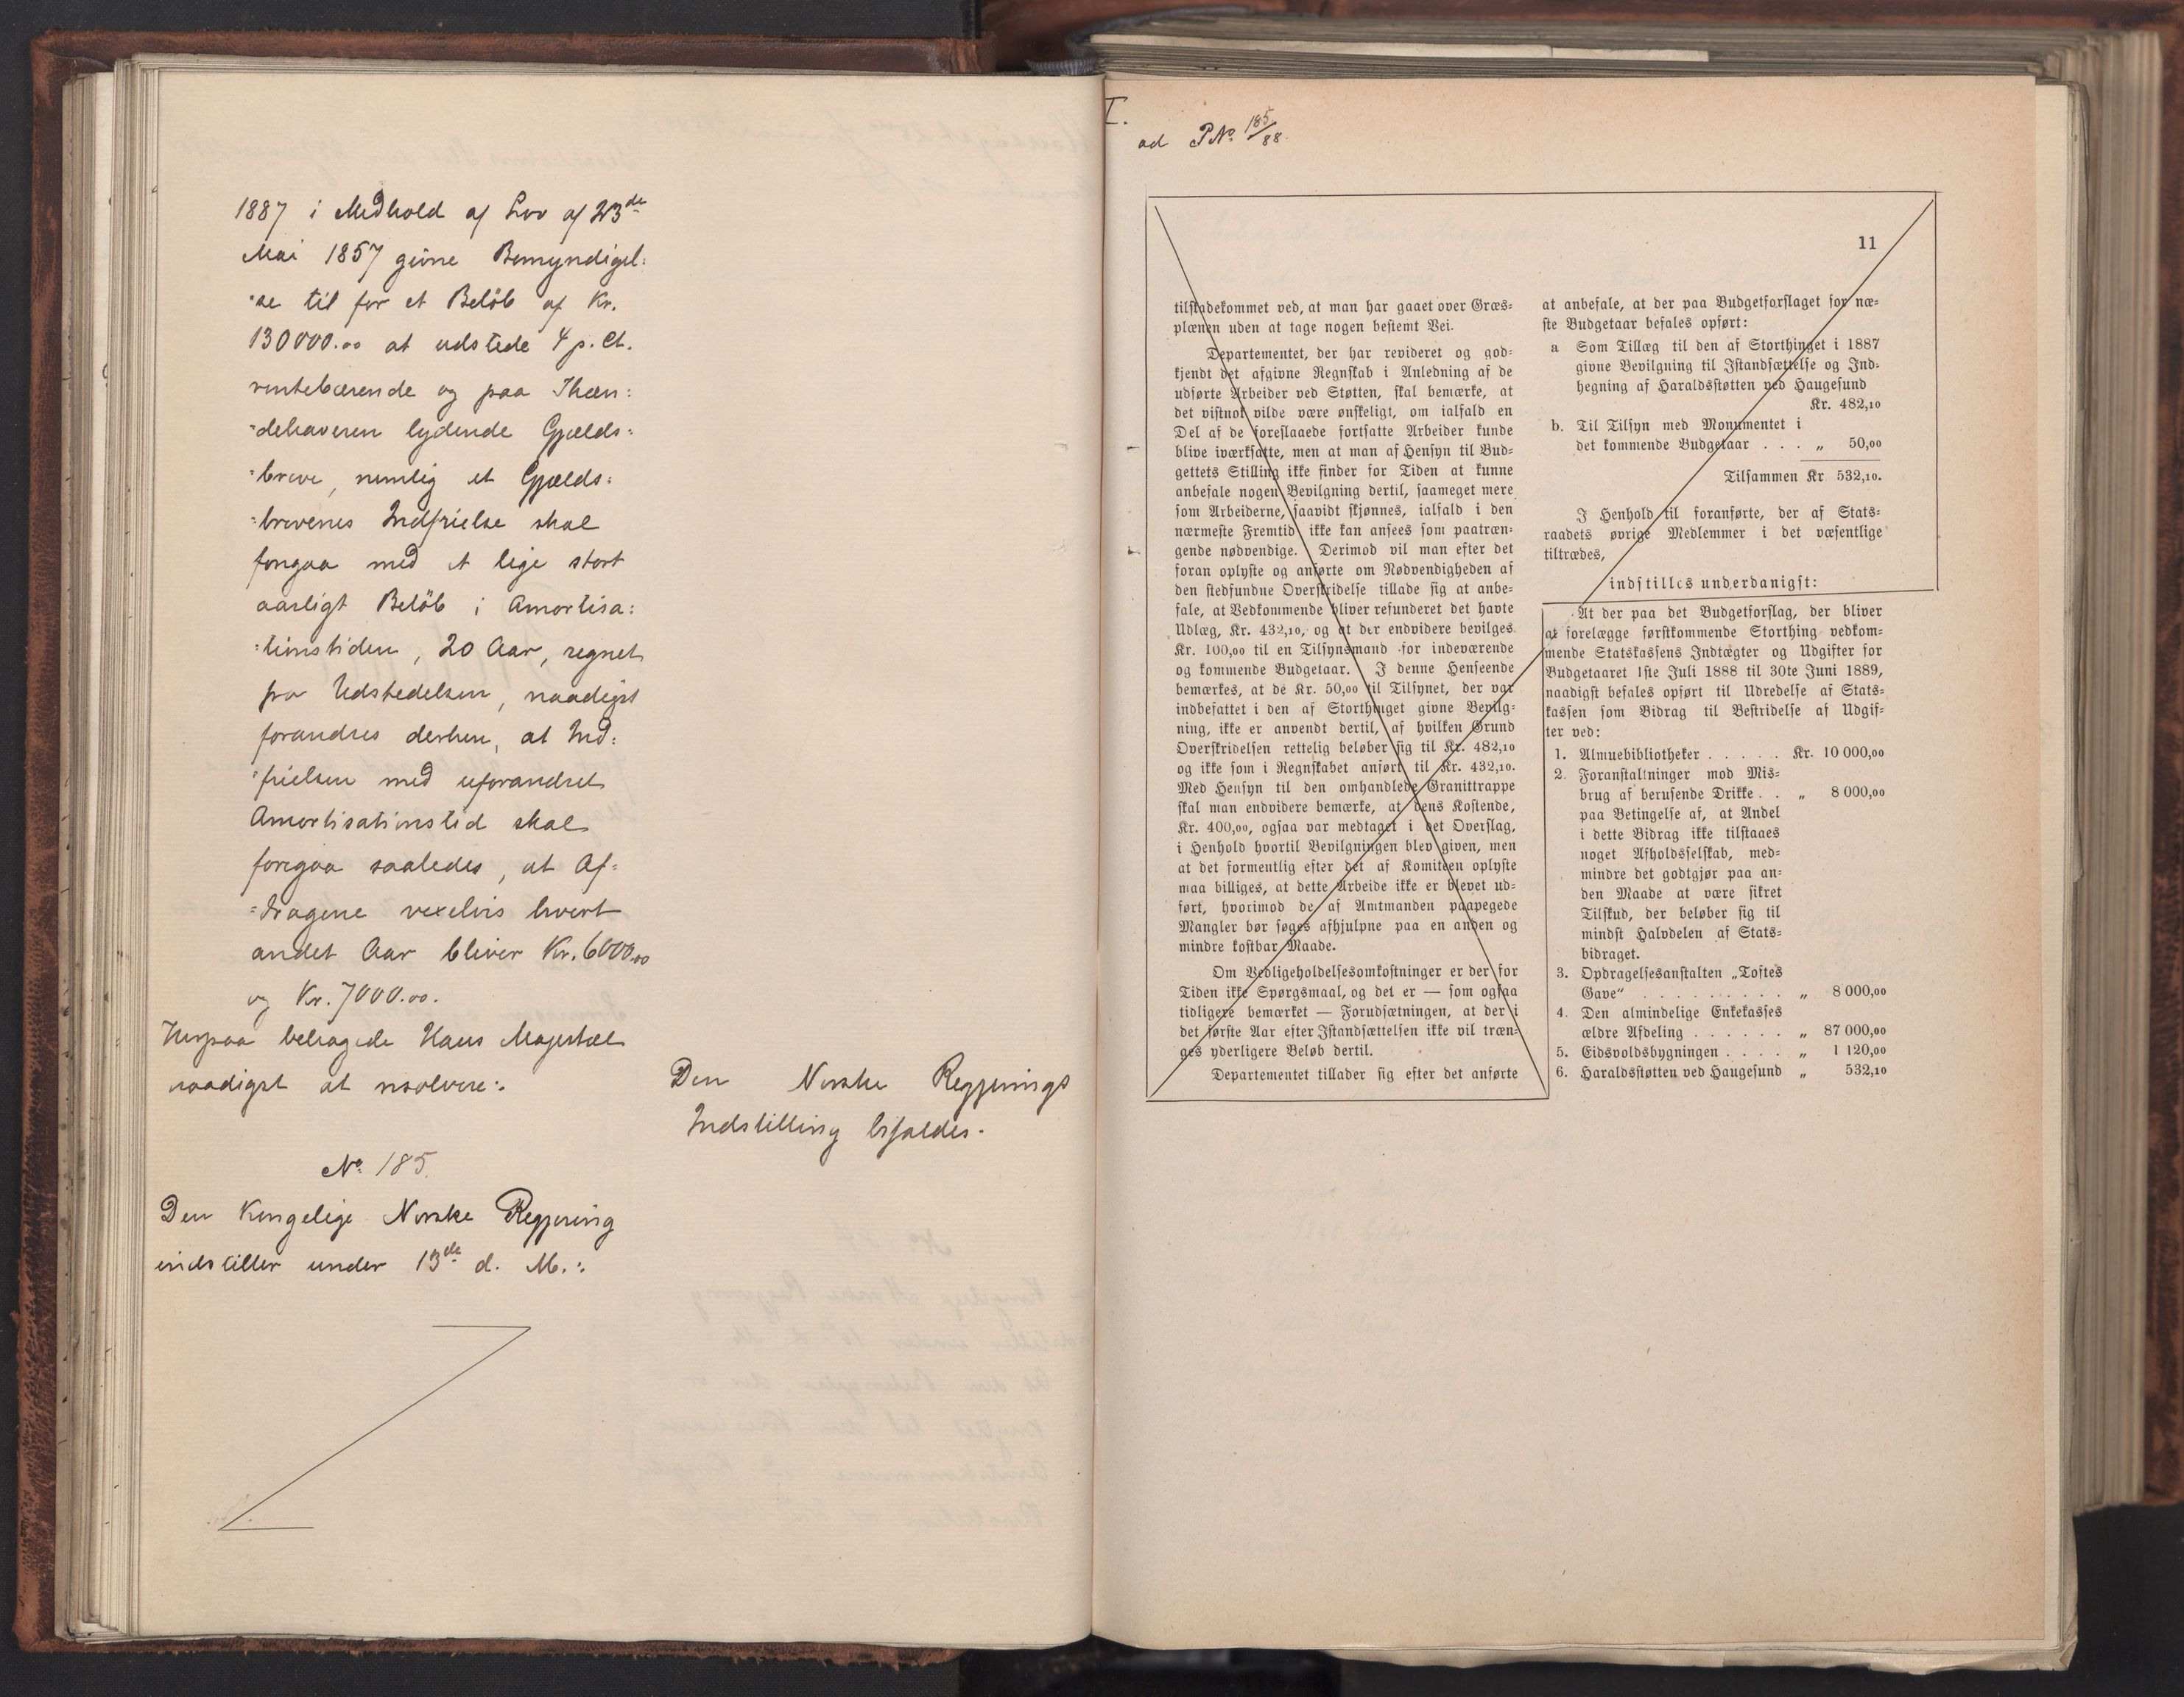 1887 i Medhold af Lov af 23de
Mai 1857 givne Bemyndigel:
:se til for et Beløb af Kr.
130000.00 at udstede 4 p. Ct.
rentebærende og paa Ihæn:
:dehaveren lydende Gjælds:
:breve, nemlig at Gjælds:
:brevenes Indfrielse skal
foregaa med et lige stort
aarligt Beløb i Amortisa:
:tionstiden, 20 Aar, regnet
fra Udstedelsen, naadigst
forandres derhen, at Ind:
:frielsen med uforandret
Amortisationstid skal
foregaa saaledes, at Af:
:dragene vexelvis hvert
andet Aar bliver Kr. 6000.00
og Kr. 7000.00.
Herpaa behagede Hans Majestæt
naadigst at resolvere:
Den Norske Regjerings
Indstilling bifaldes.
No 185.
Den Kongelige Norske Regjering
indstiller under 13de d. M.:
I.
ad PNo 185/88.
11
tilstadekommet ved, at man har gaaet over Græs-
plænen uden at tage nogen bestemt Vei.
Departementet, der har revideret og god-
kjendt det afgivne Regnskab i Anledning af de
udførte Arbeider ved Støtten, skal bemærke, at
det vistnok vilde være ønskeligt, om ialfald en
Del af de foreslaaede fortsatte Arbeider kunde
blive iværksatte, men at man af Hensyn til Bud-
gettets Stilling ikke finder for Tiden at kunne
anbefale nogen Bevilgning dertil, saameget mere
som Arbeiderne, saavidt skjønnes, ialfald i den
nærmeste Fremtid ikke kan ansees som paatræn-
gende nødvendige. Derimod vil man efter det
foran oplyste og anførte om Nødvendigheden af
den stedfundne Overskridelse tillade sig at anbe-
fale, at Vedkommende bliver refunderet det havte
Udlæg, Kr. 432,10, og at der endvidere bevilges
Kr. 100,00 til en Tilsynsmand for indeværende
og kommende Budgetaar. I denne Henseende
bemærkes, at de Kr. 50,00 til Tilsynet, der var
indbefattet i den af Storthinget givne Bevilg-
ning, ikke er anvendt dertil, af hvilken Grund
Overskridelsen rettelig beløber sig til Kr. 482,10
og ikke som i Regnskabet anført til Kr. 432,10.
Med Hensyn til den omhandlede Granittrappe
skal man endvidere bemærke, at dens Kostende,
Kr. 400,00, ogsaa var medtaget i det Overslag,
i Henhold hvortil Bevilgningen blev given, men
at det formentlig efter det af Komiteen oplyste
maa billiges, at dette Arbeide ikke er blevet ud-
ført, hvorimod de af Amtmanden paapegede
Mangler bør søges afhjulpne paa en anden og
mindre kostbar Maade.
Om Vedligeholdelsesomkostninger er der for
Tiden ikke Spørgsmaal, og det er — som ogsaa
tidligere bemærket — Forudsætningen, at der i
det første Aar efter Istandsættelsen ikke vil træn-
ges yderligere Beløb dertil.
Departementet tillader sig efter det anførte
at anbefale, at der paa Budgetforslaget for næ-
ste Budgetaar befales opført:
a Som Tillæg til den af Storthinget i 1887
givne Bevilgning til Istandsættelse og Ind-
hegning af Haraldsstøtten ved Haugesund
Kr. 482,10
b. Til Tilsyn med Monumentet i
det kommende Budgetaar . . . „ 50,00
Tilsammen Kr 532,10.
I Henhold til foranførte, der af Stats-
raadets øvrige Medlemmer i det væsentlige
tiltrædes,
indstilles underdanigst:
At der paa det Budgetforslag, der bliver
at forelægge førstkommende Storthing vedkom-
mende Statskassens Indtægter og Udgifter for
Budgetaaret 1ste Juli 1888 til 30te Juni 1889,
naadigst befales opført til Udredelse af Stats-
kassen som Bidrag til Bestridelse af Udgif-
ter ved:
1. Almuebibliotheker . . . . . Kr. 10 000,00
2. Foranstaltninger mod Mis-
brug af berusende Drikke . . „ 8 000,00
paa Betingelse af, at Andel
i dette Bidrag ikke tilstaaes
noget Afholdsselskab, med-
mindre det godtgjør paa an-
den Maade at være sikret
Tilskud, der beløber sig til
mindst Halvdelen af Stats-
bidraget.
3. Opdragelsesanstalten „Toftes
Gave“ . . . . . . . . . „ 8 000,00
4. Den almindelige Enkekasses
ældre Afdeling . . . . . . „ 87 000,00
5. Eidsvoldsbygningen . . . . „ 1 120,00
6. Haraldsstøtten ved Haugesund „ 532,10